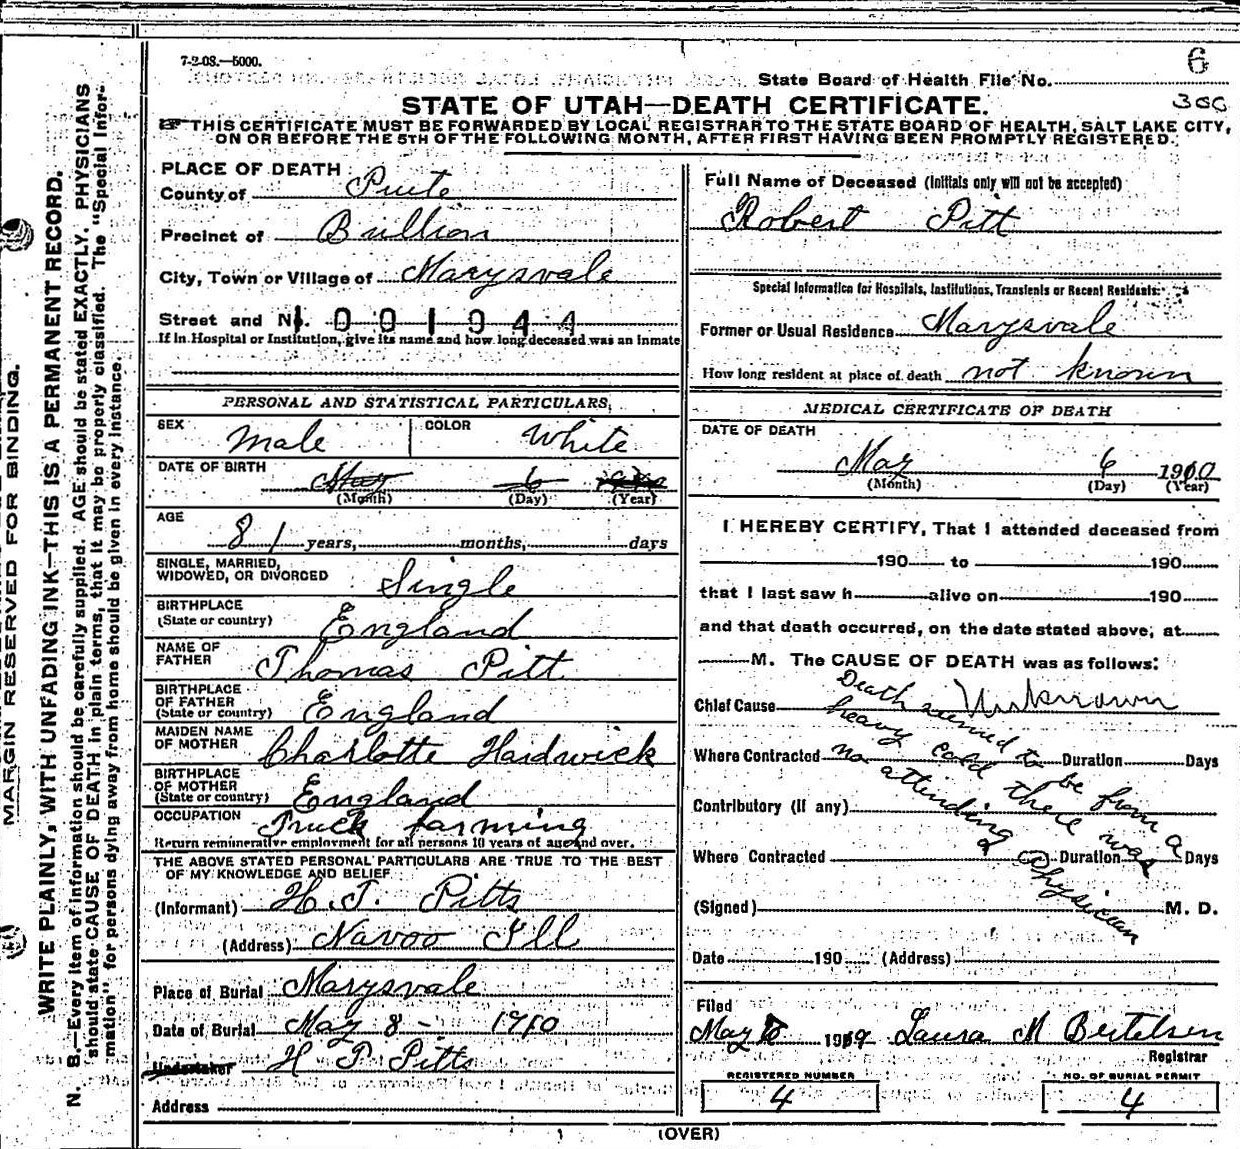 7-2-08.—5000.
6
State Board of Health File No.
300
STATE OF UTAH—DEATH CERTIFICATE.
THIS CERTIFICATE MUST BE FORWARDED BY LOCAL REGISTRAR TO THE STATE BOARD OF HEALTH, SALT LAKE CITY,
ON OR BEFORE THE 5TH OF THE FOLLOWING MONTH, AFTER FIRST HAVING BEEN PROMPTLY REGISTERED.
MARGIN RESERVED FOR BINDING.
WRITE PLAINLY, WITH UNFADING INK—THIS IS A PERMANENT RECORD.
N. B.—Every item of information should be carefully supplied. AGE should be stated EXACTLY. PHYSICIANS
should state CAUSE OF DEATH in plain terms, that it may be properly classified. The "Special Infor-
mation" for persons dying away from home should be given in every instance.
PLACE OF DEATH
County of Piute
Precinct of Bullion
City, Town or Village of Marysvale
Street and No. 1001944
If in Hospital or Institution, give its name and how long deceased was an inmate
PERSONAL AND STATISTICAL PARTICULARS.
SEX Male COLOR White
DATE OF BIRTH May 6
(Month) (Day) (Year)
AGE 81 years, months, days
SINGLE, MARRIED,
WIDOWED, OR DIVORCED Single
BIRTHPLACE
(State or country) England
NAME OF
FATHER Thomas Pitt
BIRTHPLACE
OF FATHER
(State or country) England
MAIDEN NAME
OF MOTHER Charlotte Hardwick
BIRTHPLACE
OF MOTHER
(State or country) England
OCCUPATION Truck farming
Return remunerative employment for all persons 10 years of age and over.
THE ABOVE STATED PERSONAL PARTICULARS ARE TRUE TO THE BEST
OF MY KNOWLEDGE AND BELIEF
(Informant) H. T. Pitts
(Address) Navoo Ill
Place of Burial Marysvale
Date of Burial May 8 - 1910
Undertaker H P Pitts
Address
Full Name of Deceased (Initials only will not be accepted)
Robert Pitt
Special Information for Hospitals, Institutions, Transients or Recent Residents:
Former or Usual Residence Marysvale
How long resident at place of death not known
MEDICAL CERTIFICATE OF DEATH
DATE OF DEATH
May 6 1910
(Month) (Day) (Year)
I HEREBY CERTIFY, That I attended deceased from
190 to 190
that I last saw h alive on 190
and that death occurred, on the date stated above, at
M. The CAUSE OF DEATH was as follows:
Chief Cause Unknown
Death seemed to be from a
heavy cold there was
no attending Physician
Where Contracted Duration Days
Contributory (if any)
Where Contracted Duration Days
(Signed) M. D.
Date 190 (Address)
Filed
May 19 Laura M Bertelsen
Registrar
REGISTERED NUMBER
4
NO. OF BURIAL PERMIT
4
(OVER)